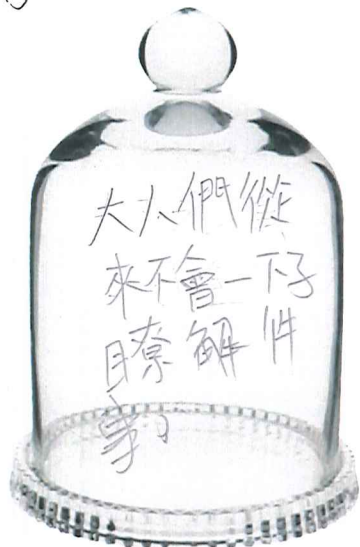 大人們從
來不會一下子
瞭解一件
事